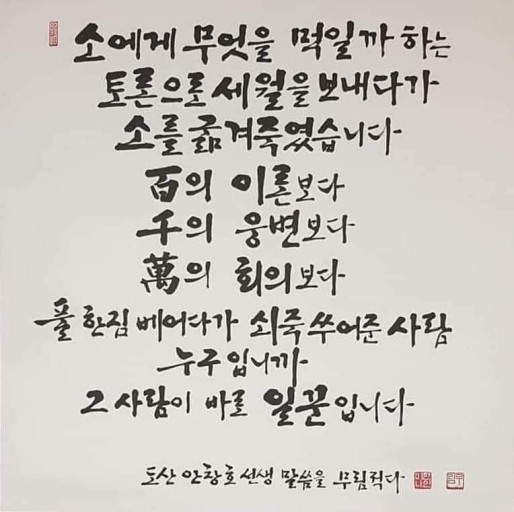 소에게 무엇을 먹일까 하는
토론으로 세월을 보내다가
소를 굶겨죽였습니다
百의 이론보다
千의 웅변보다
萬의 회의보다
풀 한짐 베어다가 쇠죽 쑤어준 사람
누구입니까
그 사람이 바로 일꾼입니다
도산 안창호 선생 말씀을